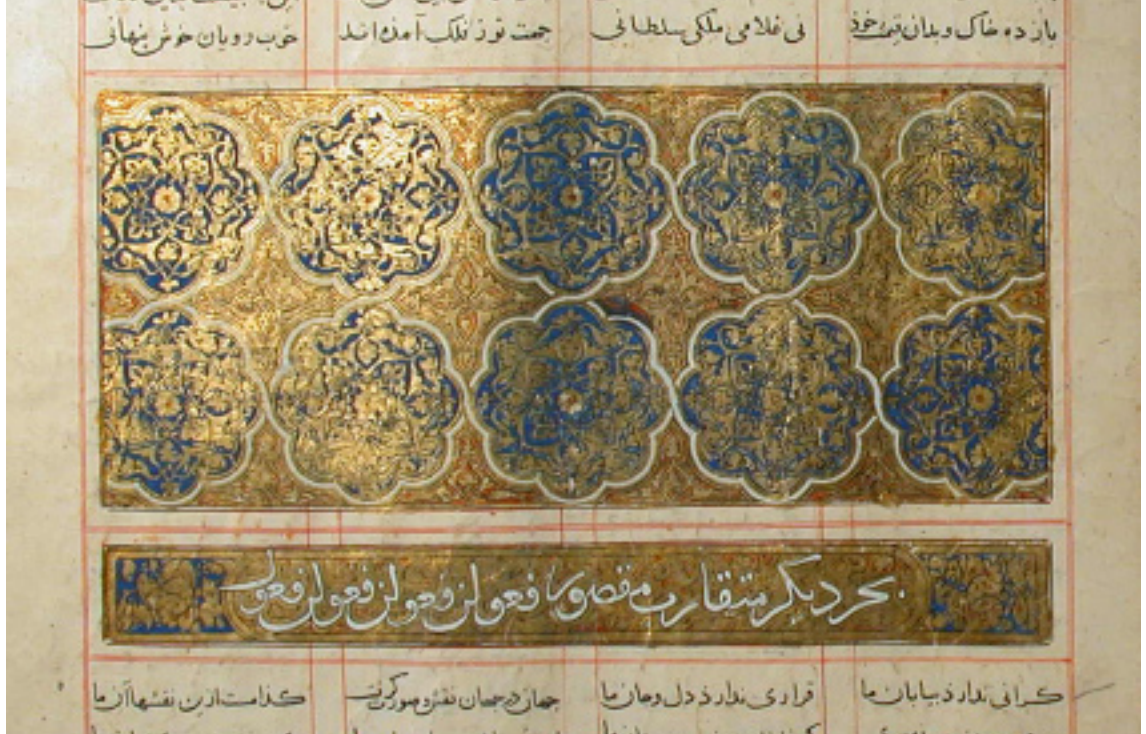 باز ده خاک و بدان نی غلامی ملکی سلطانی
جهت نور فلک آمده‌اند خوب رویان خوش پنهانی
بحر دیگر متقارب مقصور فعولن فعولن فعولن فعول
کرانی ندارذ بیابان ما قراری ندارذ دل و جان ما
جهان در جهان نقش و صورت گرفت کذامست ازین نقشها آن ما